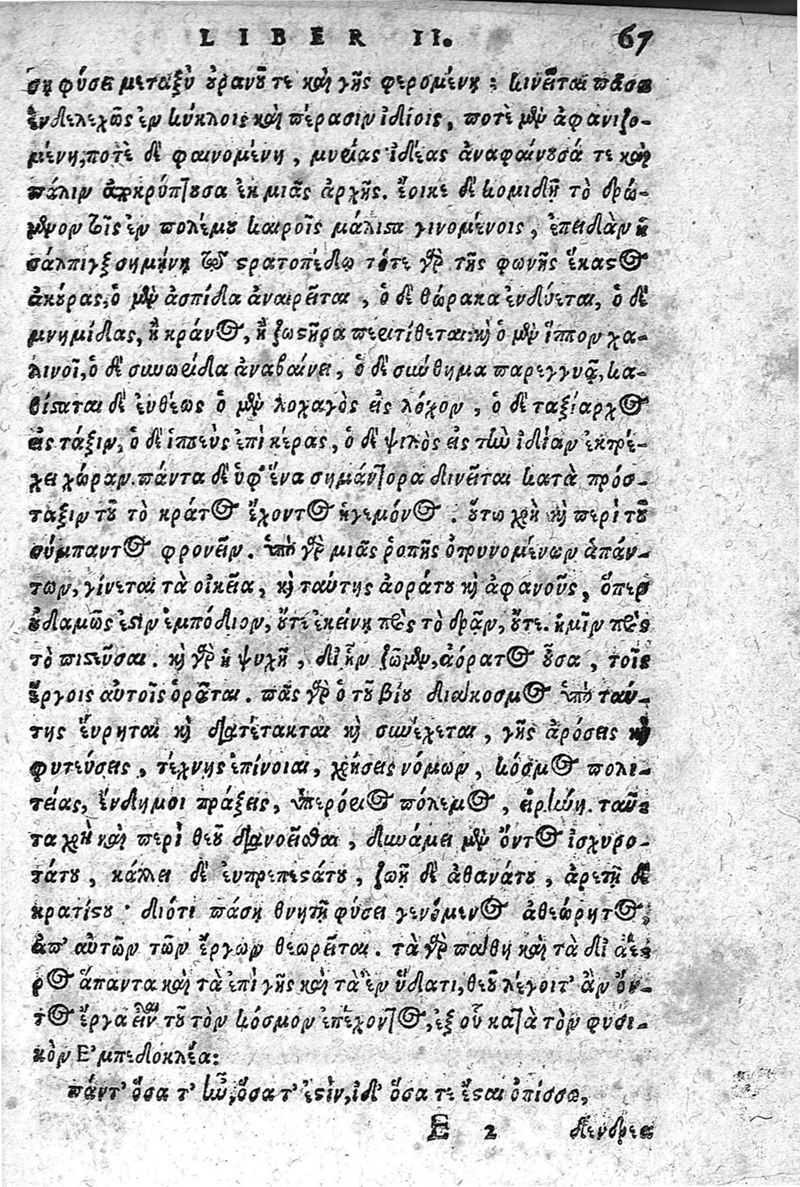 LIBER II. 67
ση φύσει μεταξὺ οὐρανοῦ τε καὶ γῆς φερομένη: κινεῖται πᾶσα
ἐνδελεχῶς ἐν κύκλοις καὶ πέρασιν ἰδίοις, ποτὲ μὲν ἀφανιζο-
μένη, ποτὲ δὲ φαινομένη, μυείας ἰδέας ἀναφαίνουσά τε καὶ
πάλιν ἀποκρύπτουσα ἐκ μιᾶς ἀρχῆς. ἔοικε δὲ κομιδῇ τὸ δρώ-
μενον τοῖς ἐν πολέμου καιροῖς μάλιστα γινομένοις, ἐπειδὰν ἡ
σάλπιγξ σημήνῃ τῷ στρατοπέδῳ τότε γὰρ τῆς φωνῆς ἕκαστος
ἀκούσας, ὁ μὲν ἀσπίδα ἀναιρεῖται, ὁ δὲ θώρακα ἐνδύεται, ὁ δὲ
μνημίδας, ἢ κράνος, ἢ ζωστῆρα περιτίθεται· καὶ ὁ μὲν ἵππον χα-
λινοῖ, ὁ δὲ συνωρίδα ἀναβαίνει, ὁ δὲ σύνθημα παρεγγυᾷ, κα-
θίσταται δὲ εὐθέως ὁ μὲν λοχαγὸς εἰς λόχον, ὁ δὲ ταξίαρχος
εἰς τάξιν, ὁ δὲ ἱππεὺς ἐπὶ κέρας, ὁ δὲ ψιλὸς εἰς τὴν ἰδίαν ἐκτρέ-
χει χώραν. πάντα δὲ ὑφ' ἕνα σημάντορα δινεῖται κατὰ πρόσ-
ταξιν τοῦ τὸ κράτος ἔχοντος ἡγεμόνος. οὕτω χρὴ καὶ περὶ τοῦ
σύμπαντος φρονεῖν. ὑπὸ γὰρ μιᾶς ῥοπῆς ὀτρυνομένων ἁπάν-
των, γίνεται τὰ οἰκεῖα, καὶ ταύτης ἀοράτου καὶ ἀφανοῦς, ὅπερ
οὐδαμῶς ἐστιν ἐμπόδιον, οὔτε ἐκείνῃ πρὸς τὸ δρᾶν, οὔτε. ἡμῖν πρὸς
τὸ πιστεῦσαι. καὶ γὰρ ἡ ψυχὴ, δι' ἣν ζῶμεν, ἀόρατος οὖσα, τοῖς
ἔργοις αὐτοῖς ὁρᾶται. πᾶς γὰρ ὁ τοῦ βίου διάκοσμος ὑπὸ ταύ-
της εὕρηται καὶ διατέτακται καὶ συνέχεται, γῆς ἀρόσεις καὶ
φυτεύσεις, τέχνης ἐπίνοιαι, χρήσεις νόμων, κόσμος πολι-
τείας, ἔνδημοι πράξεις, ὑπερόριος πόλεμος, εἰρήνη. ταῦ-
τα χρὴ καὶ περὶ θεοῦ διανοεῖσθαι, δυνάμει μὲν ὄντος ἰσχυρο-
τάτου, κάλλει δὲ εὐπρεπεστάτου, ζωῇ δὲ ἀθανάτου, ἀρετῇ δὲ
κρατίστου· διότι πάσῃ θνητῇ φύσει γενόμενος ἀθεώρητος,
ἀπ' αὐτῶν τῶν ἔργων θεωρεῖται. τὰ γὰρ πάθη καὶ τὰ δι' ἀέ-
ρος ἅπαντα καὶ τὰ ἐπὶ γῆς καὶ τὰ ἐν ὕδατι, θεοῦ λέγοιτ' ἂν ὄν-
τος ἔργα εἶναι τοῦ τὸν κόσμον ἐπέχοντος, ἐξ οὗ κατὰ τὸν φυσι-
κὸν Ἐμπεδοκλέα:
πάντ' ὅσα τ' ἦν, ὅσα τ' ἐστὶν, ἰδ' ὅσα τε ἔσται ὀπίσσω,
E 2 δένδρεα